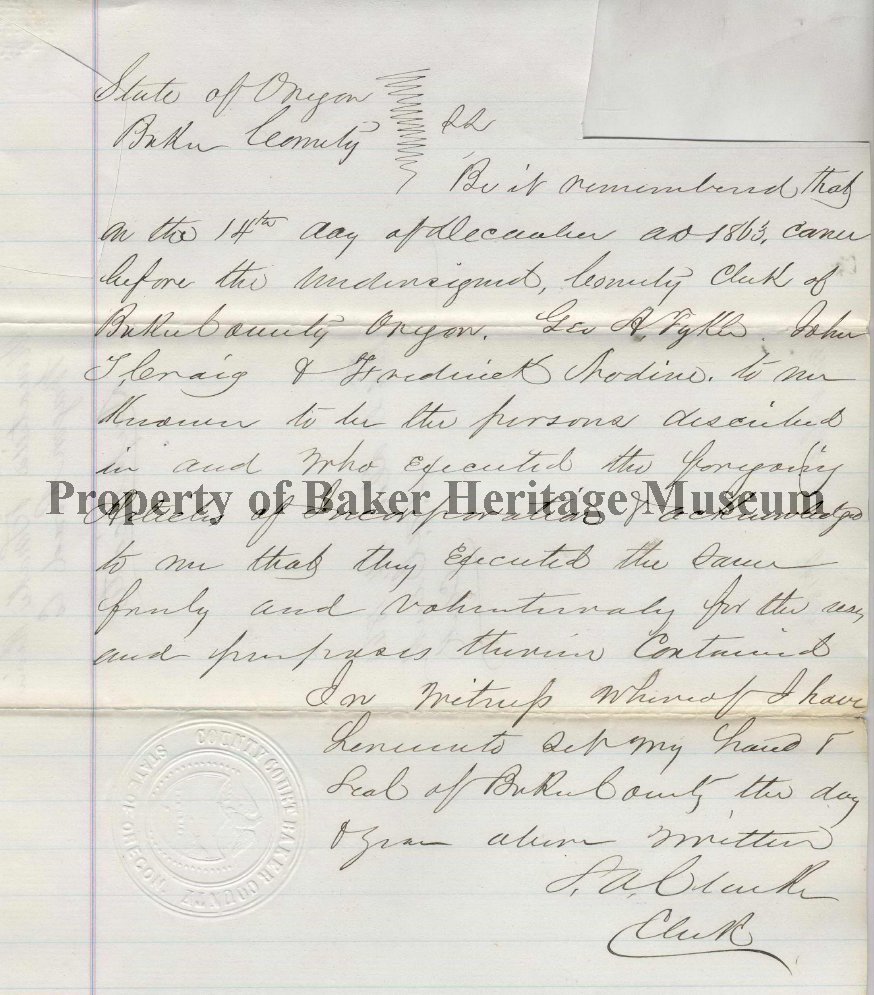 State of Oregon
Baker County
SS
Be it remembered that
on the 14th day of December AD 1863, came
before the undersigned, County Clerk of
Baker County Oregon. Geo H, Fykle. John
S, Craig & Fredrick Rodine. to me
Known to be the persons described
in and who executed the foregoing
Property of Baker Heritage Museum
Articles of Incorporation & acknowledged
to me that they Executed the same
freely and voluntaraly for the uses
and purposes therein Contained
In Witness Whereof I have
hereunto set my hand &
Seal of Baker County the day
& year above written
COUNTY COURT BAKER COUNTY
STATE OF OREGON
Clerk